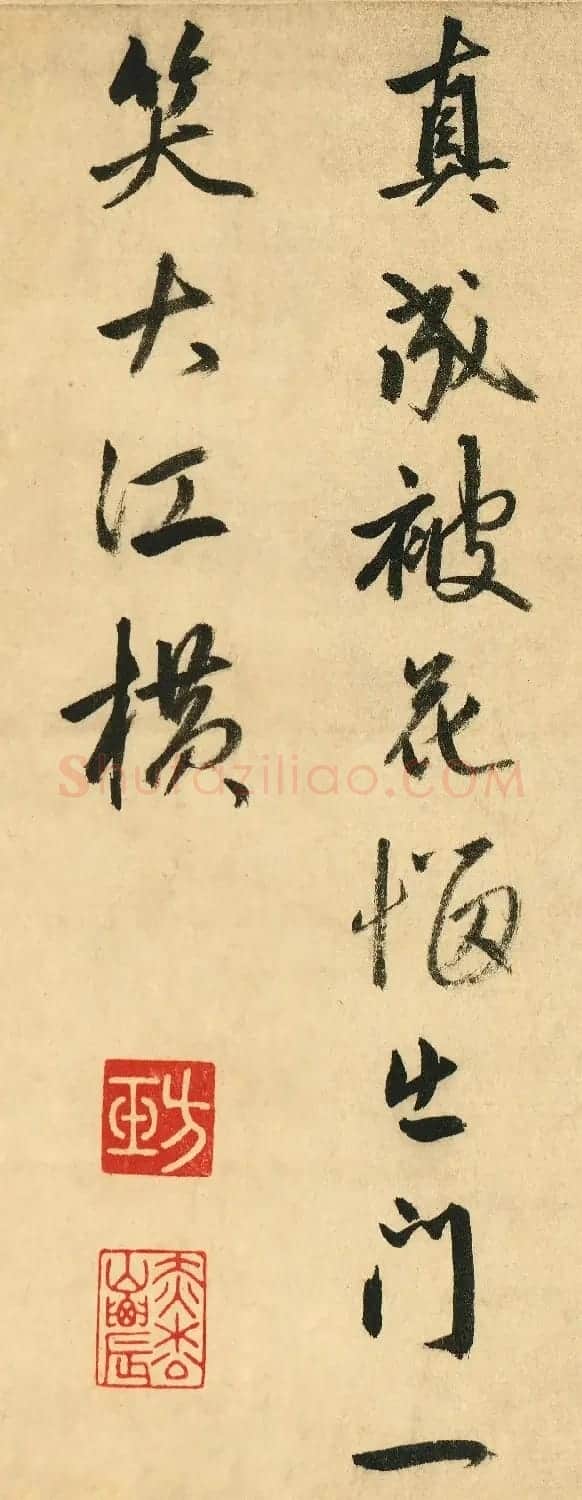 真成被花恼出门一
笑大江横
Shufaziliao.COM